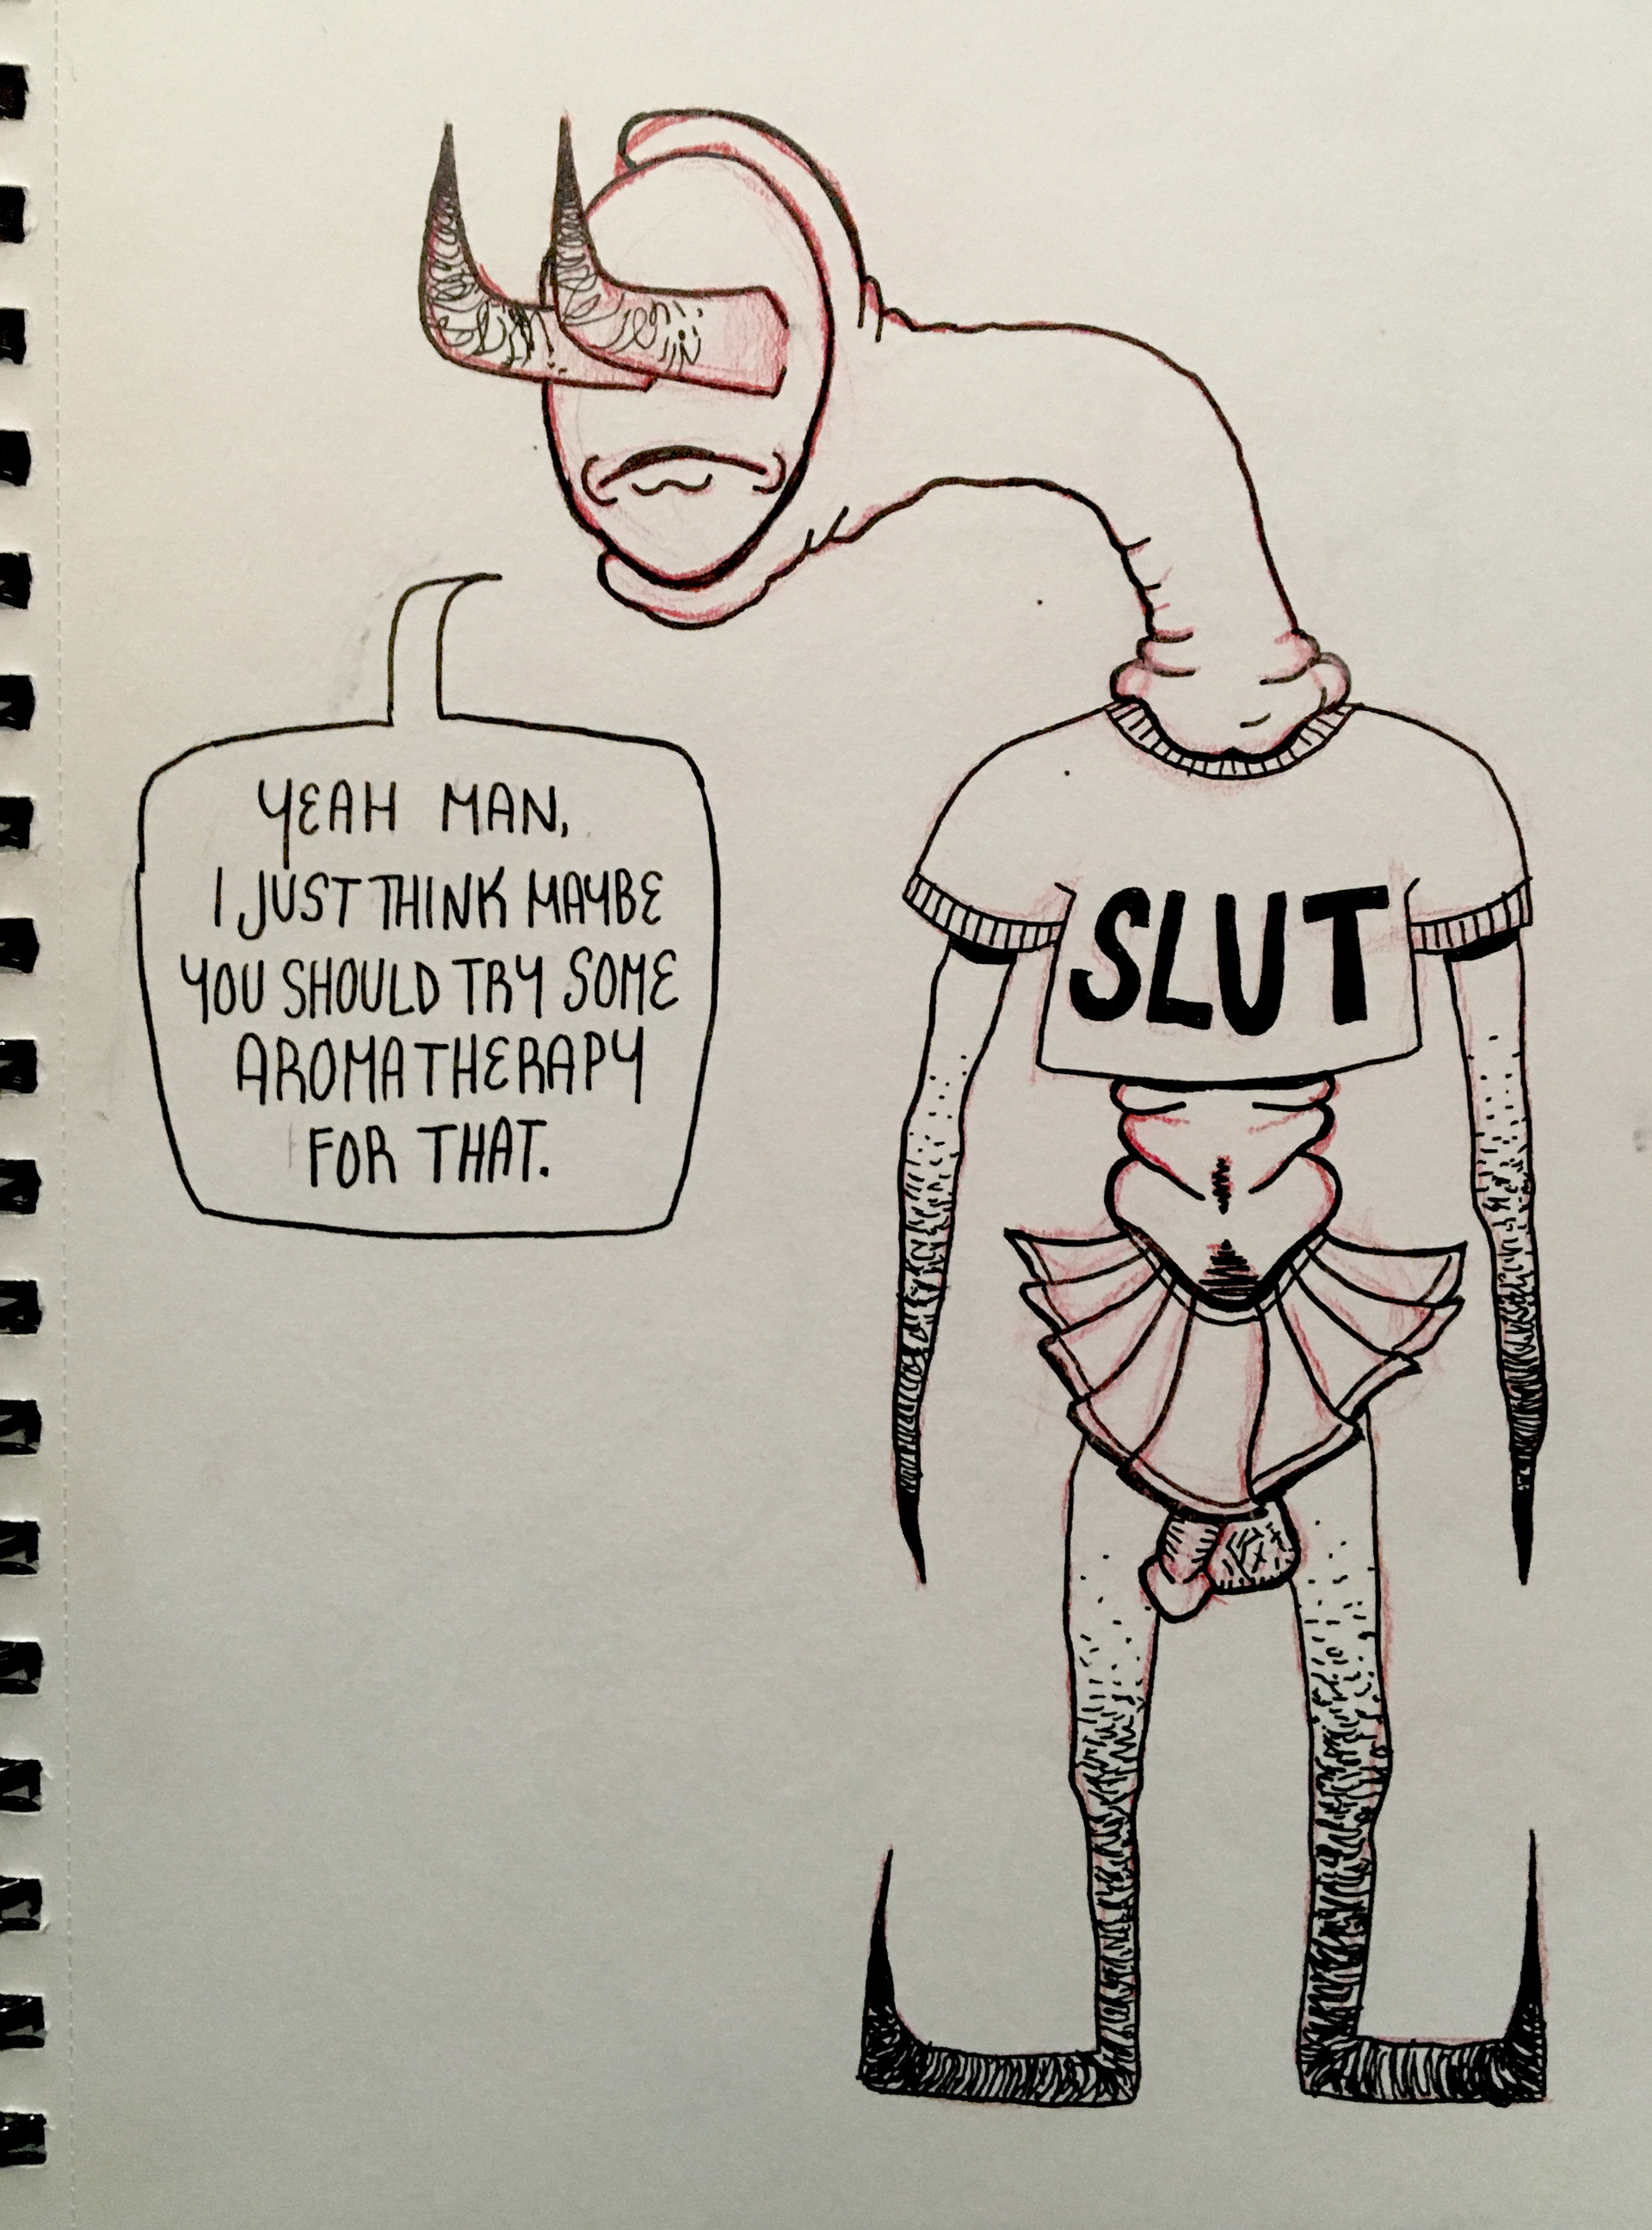 YEAH MAN,
I JUST THINK MAYBE
YOU SHOULD TRY SOME
AROMATHERAPY
FOR THAT.
SLUT